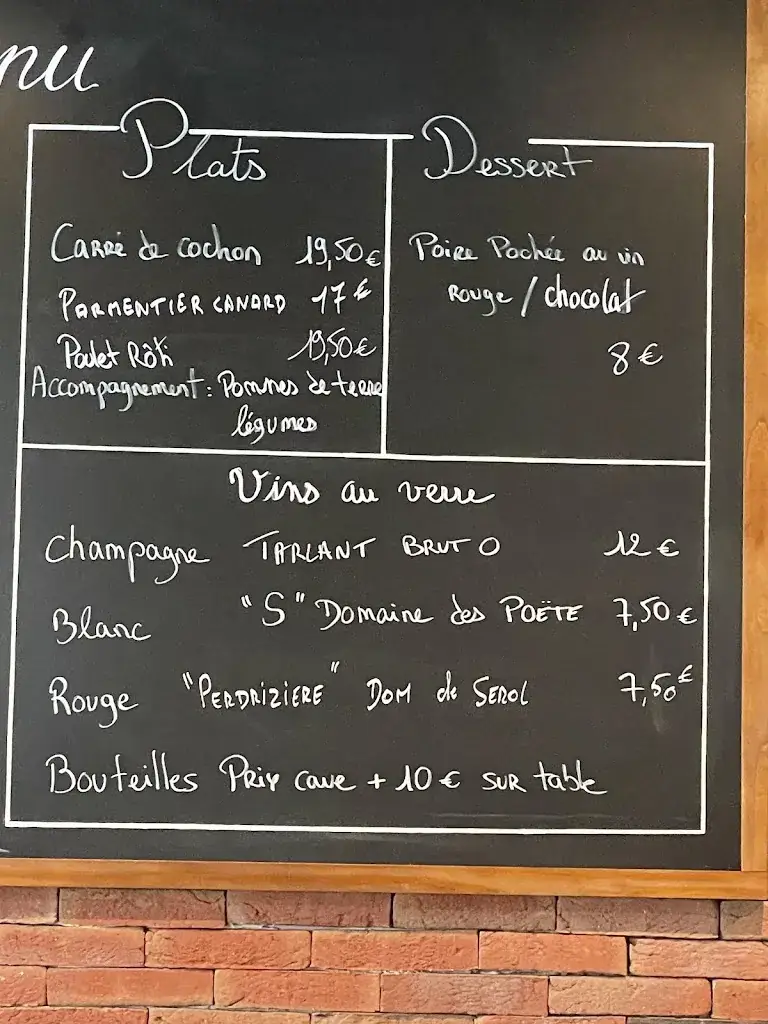 nu
Plats
Carré de cochon 19,50€
PARMENTIER CANARD 17€
Poulet Rôti 19,50€
Accompagnement : Pommes de terre
légumes
Dessert
Poire Pochée au vin
Rouge / chocolat
8€
Vins au verre
Champagne TARLANT BRUT O 12€
Blanc "S" Domaine des POËTE 7,50€
Rouge "PERDRIZIERE" DOM de SEROL 7,50€
Bouteilles Prix cave + 10€ sur table